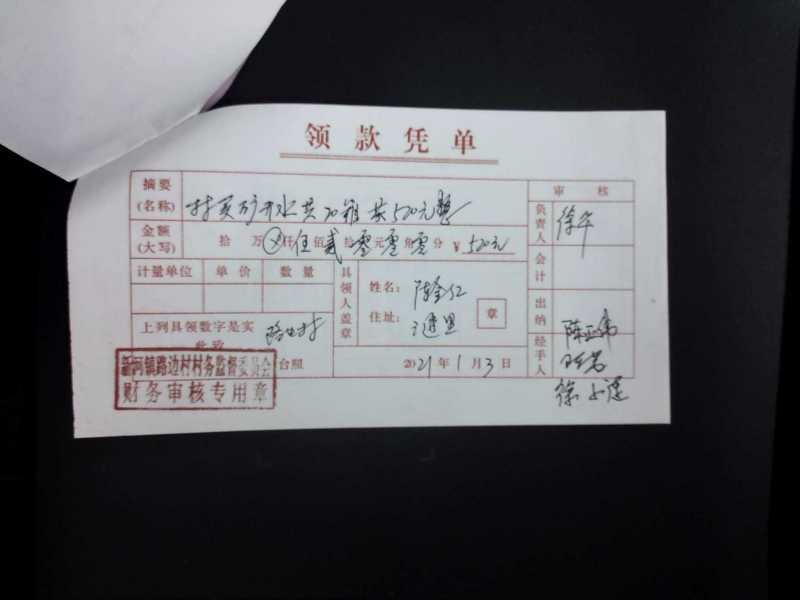 领款凭单
摘要
(名称)
村买矿泉水共20箱共520元整
审核
金额
(大写)
拾万仟伍佰贰拾零元零角零分 ¥520元
负责人
徐华
会计
计量单位 单价 数量
具领人盖章
姓名:
住址:
章
出纳
上列具领数字是实
此致
路边村
台照
2021年1月3日
经手人
新河镇路边村村务监督委员会
财务审核专用章